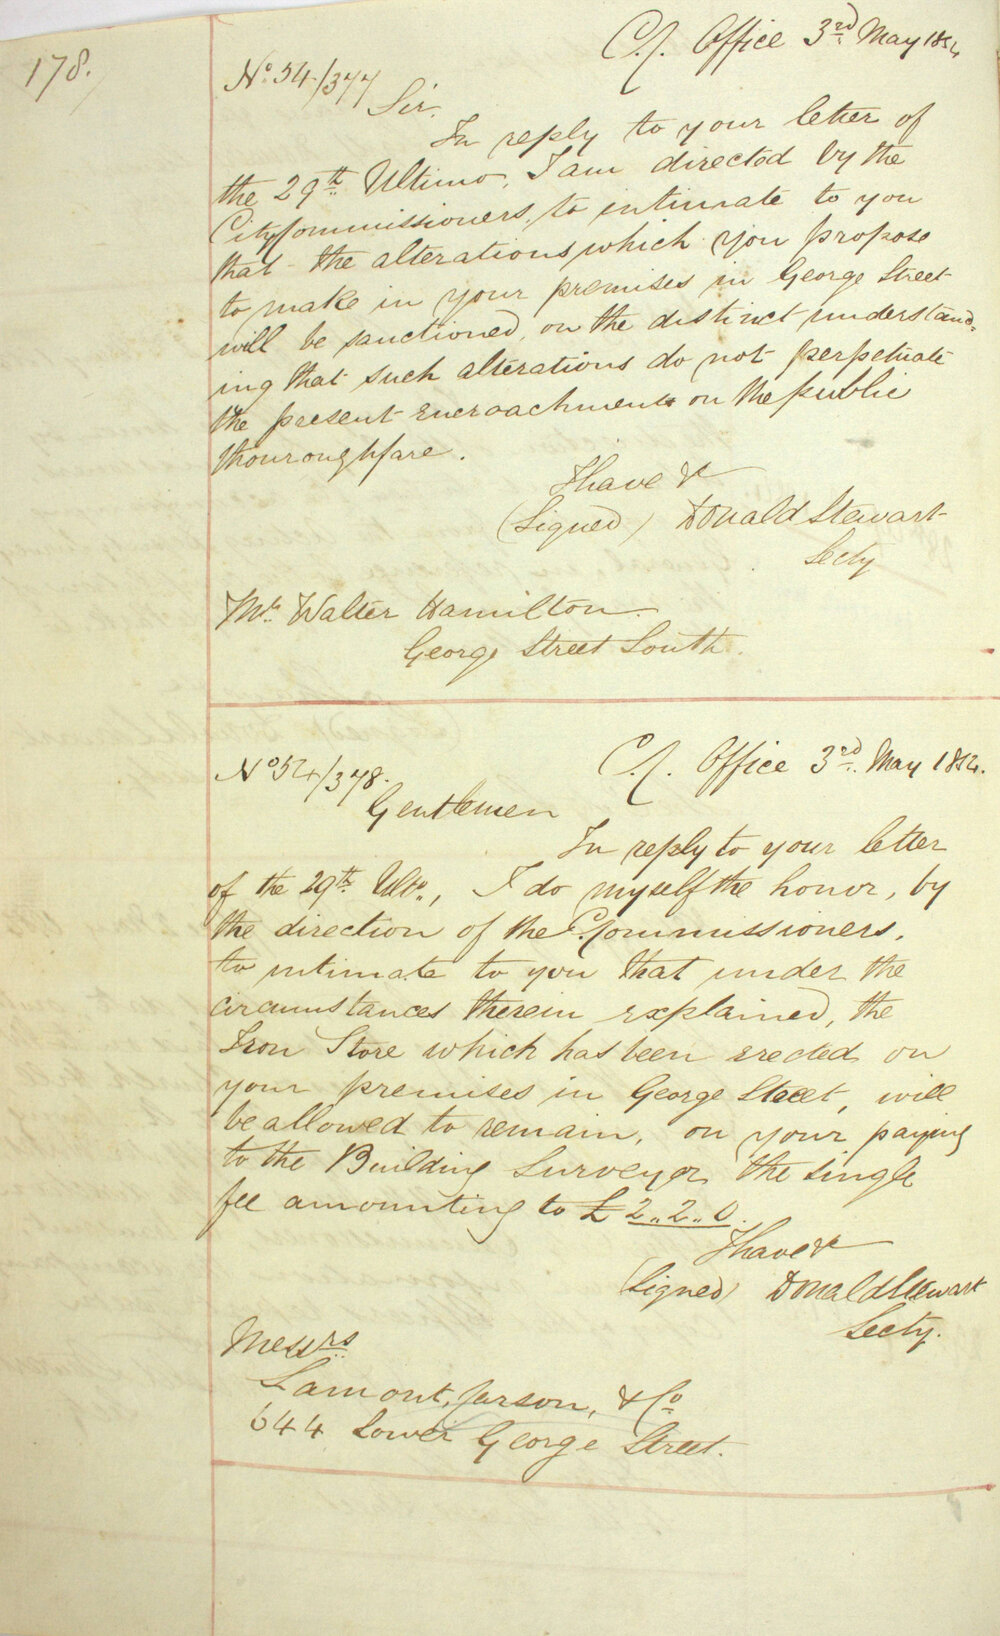 178.
C.C. Office 3rd May 1854
No. 54/377
Sir,
In reply to your letter of
the 29th Ultimo, I am directed by the
City Commissioners, to intimate to you
that the alterations which you propose
to make in your premises in George Street
will be sanctioned, on the distinct understand-
ing that such alterations do not perpetuate
the present encroachments on the public
thouroughfare.
I have &c
(Signed) Donald Stewart
Secty
Mr. Walter Hamilton.
George Street South.
C.C. Office 3rd. May 1854.
No 54/378.
Gentlemen
In reply to your letter
of the 29th. Ulto., I do myself the honor, by
the direction of the C. Commissioners,
to intimate to you that under the
circumstances therein explained, the
Iron Store which has been erected on
your premises in George Street, will
be allowed to remain, on your paying
to the Building Surveyor the single
fee amounting to £2..2..0.
I have &c
(Signed) Donald Stewart
Secty.
Messrs
Lamont, & Co
644 Lower George Street.